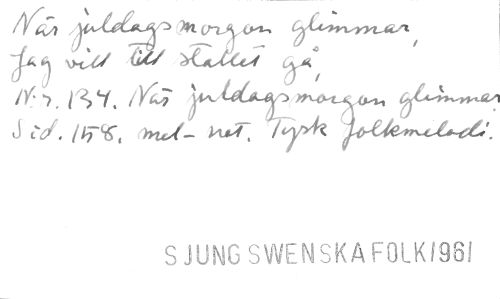 När juldagsmorgon glimmar,
Jag vill till stallet gå,
N:r. 134. När juldagsmorgon glimmar.
Sid. 158. mel-not. Tysk folkmelodi.
SJUNG SWENSKA FOLK/961